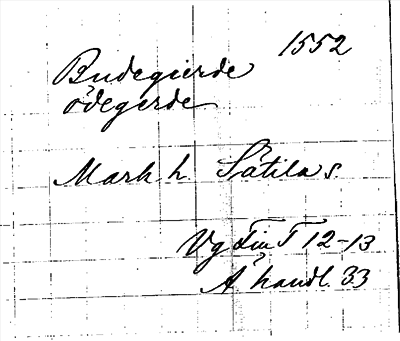 1552
Budegierde
ödegerde
Mark h Sätila s.
Vg Fin T 12-13
Å handl. 33